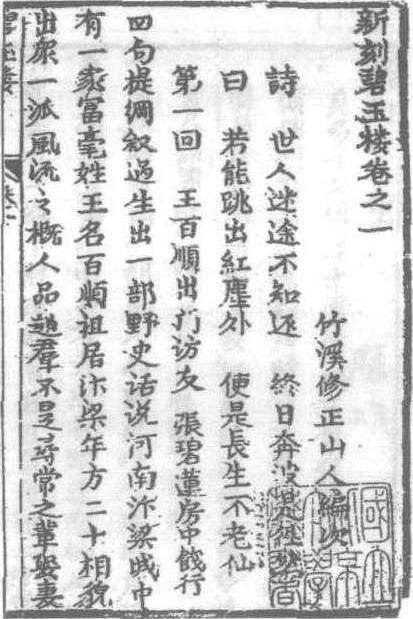 新刻碧玉楼卷之一
竹溪修正山人編次
詩 世人迷途不知返 終日奔波
曰 若能跳出紅塵外 便是長生不老仙
第一回 王百順出门访友 張碧蓮房中餞行
四句提綱叙过生出一部野史话说河南汴梁城中
有一家富毫姓王名百順祖居汴梁年方二十相貌
出衆一派風流之概人品超羣不是尋常之輩娶妻